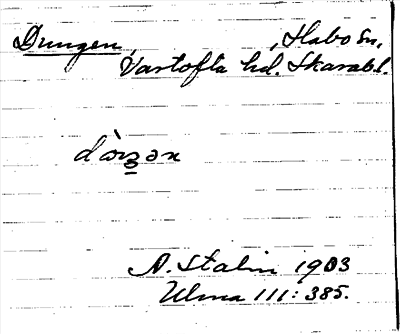 Dungen, , Habo sn,
Vartofta hd. Skarab. l.
A. Stalin 1903
Ulma 111: 385.